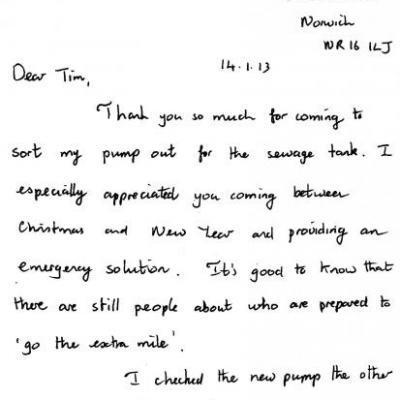 Norwich
NR16 1LJ
14.1.13
Dear Tim,
Thank you so much for coming to
sort my pump out for the sewage tank. I
especially appreciated you coming between
Christmas and New Year and providing an
emergency solution. It's good to know that
there are still people about who are prepared to
'go the extra mile'.
I checked the new pump the other